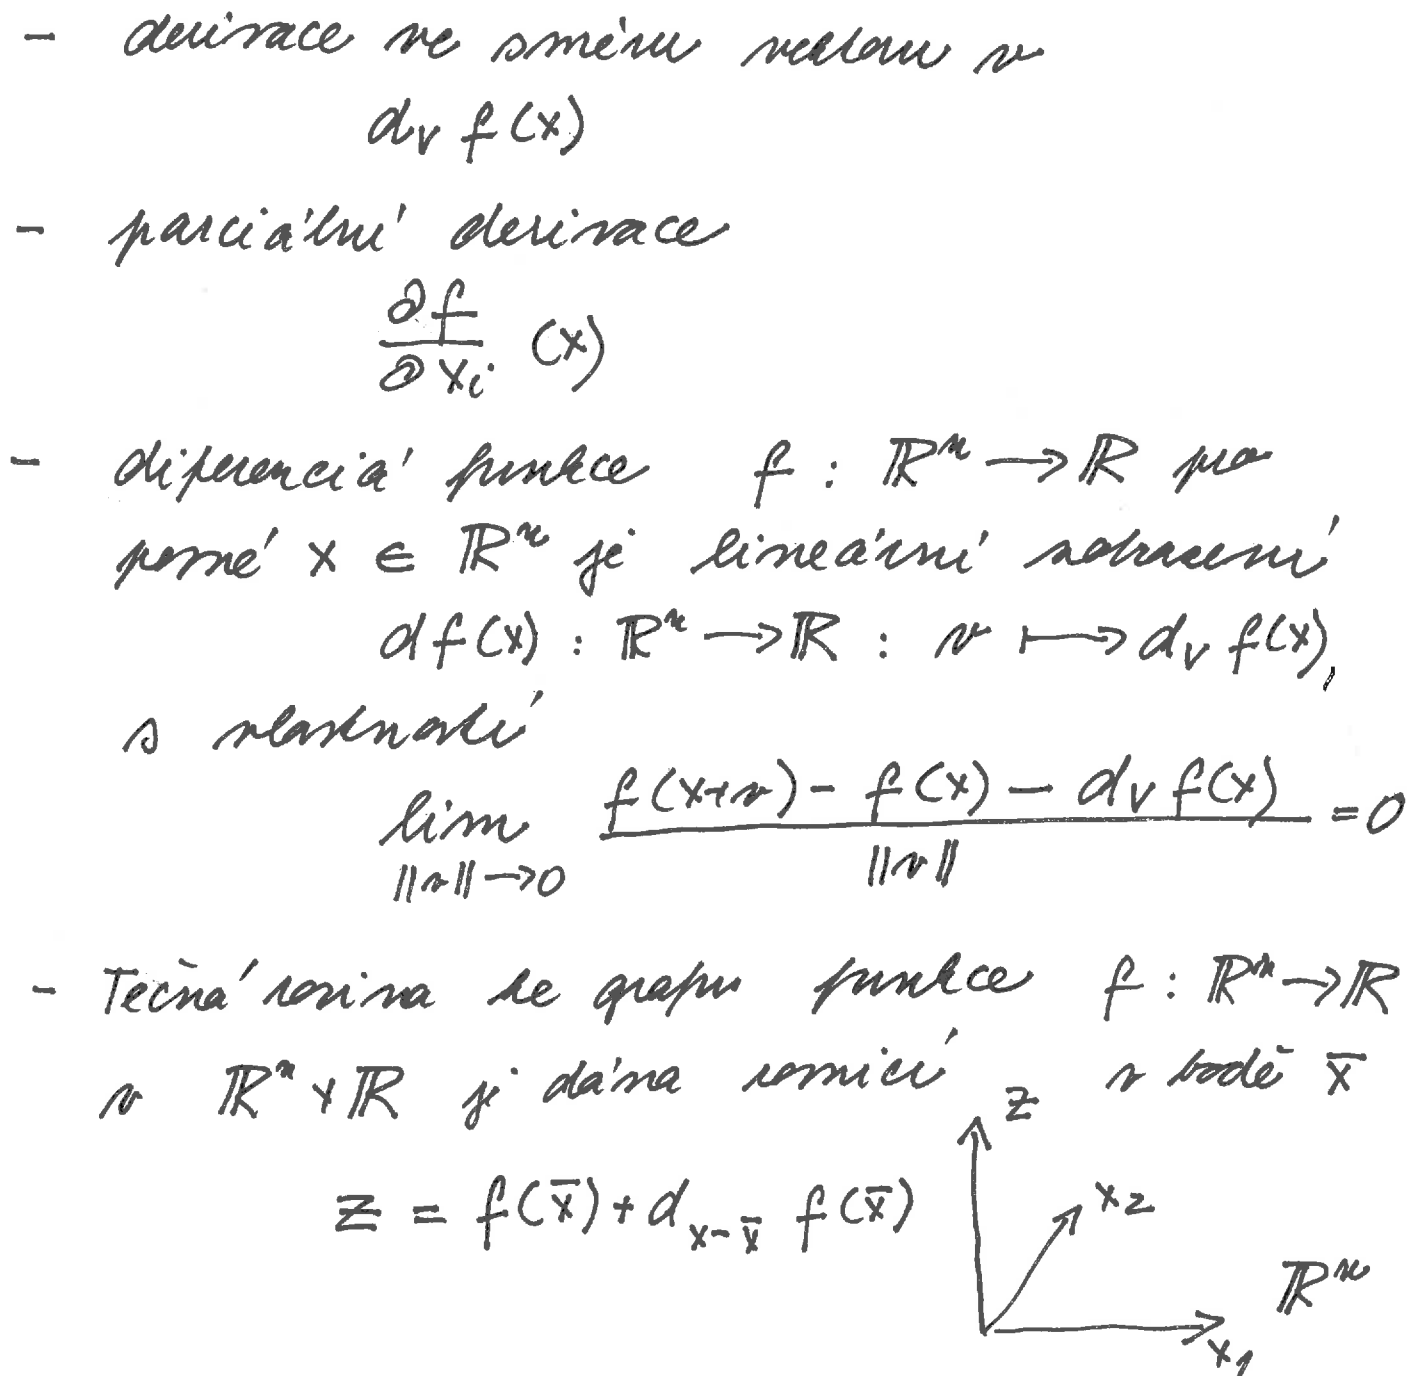 - derivace ve směru vektoru v
d_v f(x)
- parciální derivace
∂f/∂x_i (x)
- diferenciál funkce f : ℝⁿ → ℝ pro
pevné x ∈ ℝⁿ je lineární zobrazení
df(x) : ℝⁿ → ℝ : v ↦ d_v f(x),
s vlastností
lim_{||v||→0} (f(x+v) - f(x) - d_v f(x))/||v|| = 0
- Tečná rovina ke grafu funkce f : ℝⁿ → ℝ
v ℝⁿ × ℝ je dána rovnicí v bodě x̄
z
z = f(x̄) + d_{x-x̄} f(x̄)
x₂
ℝⁿ
x₁